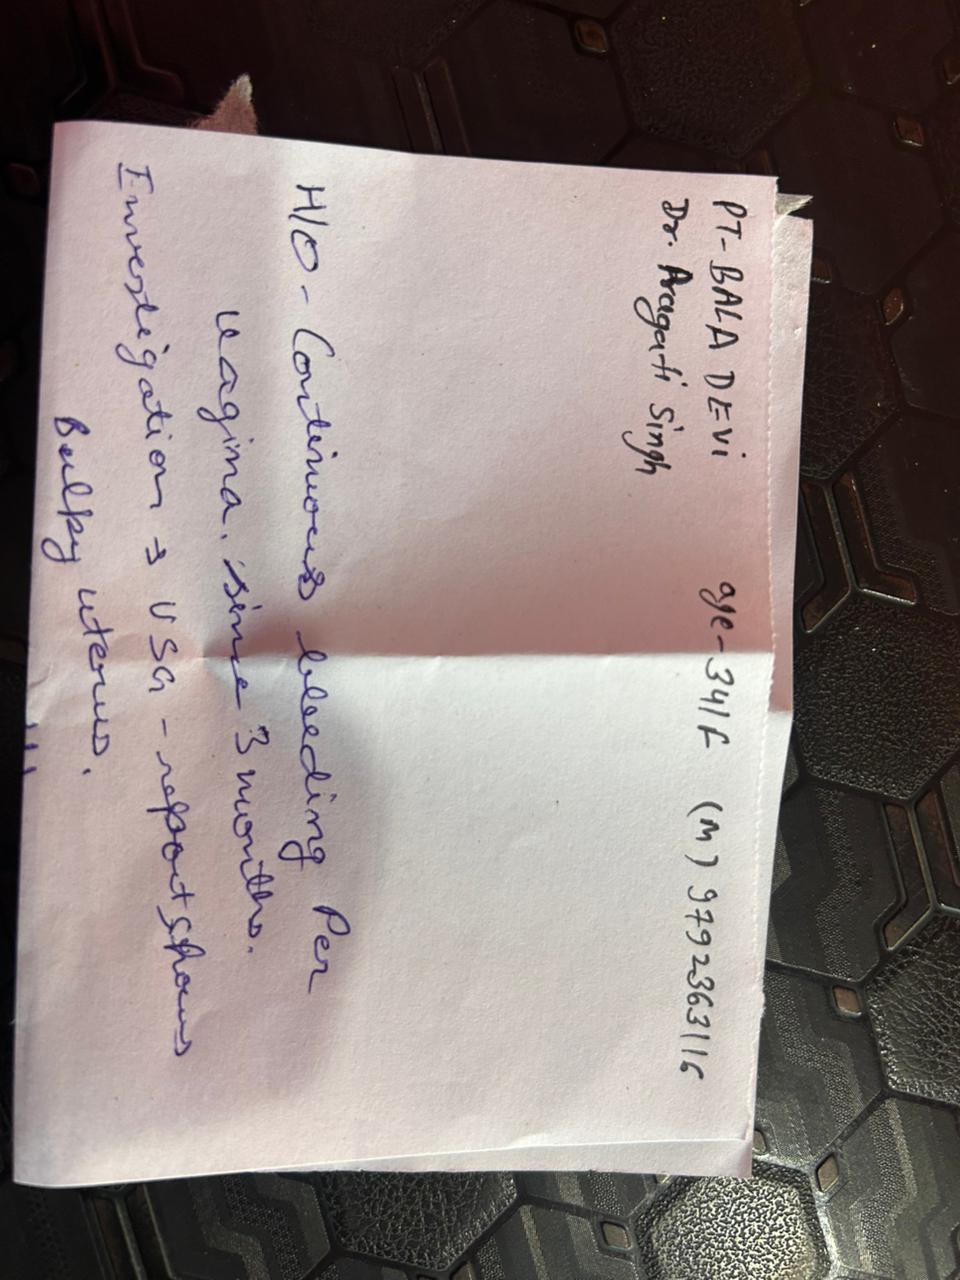 PT-BALA DEVI age-34/F (M) 9792363116
Dr. Pragati Singh
H/O - Continuous bleeding Per
vagina. since 3 months.
Investigation → USG - report shows
Bulky uterus.